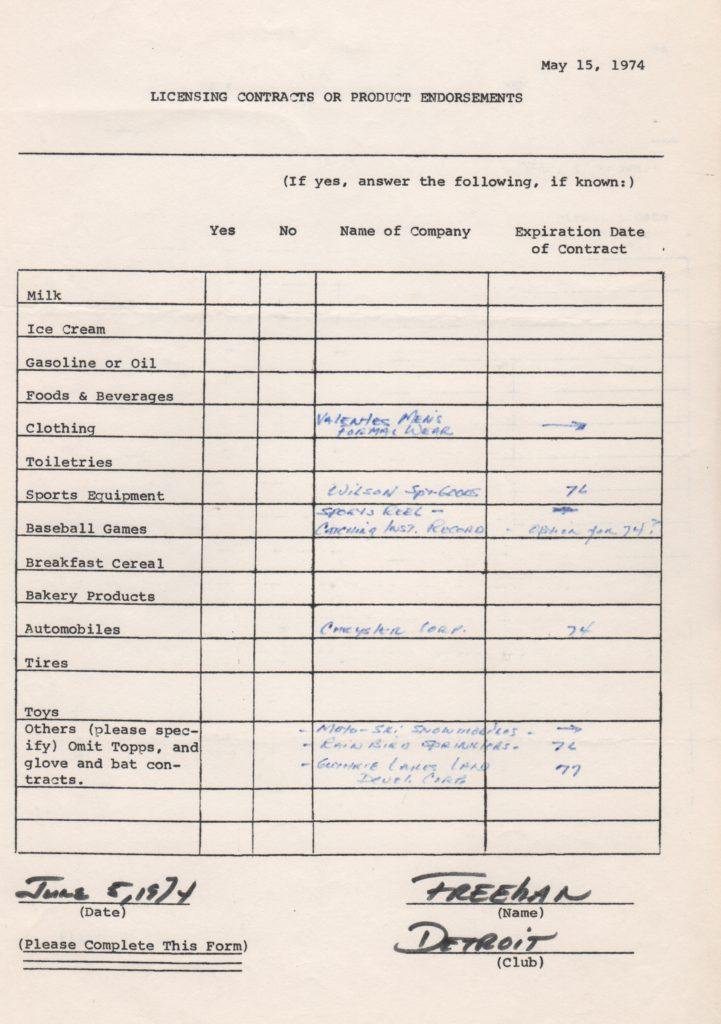 May 15, 1974
LICENSING CONTRACTS OR PRODUCT ENDORSEMENTS
(If yes, answer the following, if known:)
Yes No Name of Company Expiration Date
of Contract
Milk
Ice Cream
Gasoline or Oil
Foods & Beverages
Valentes Men's
Clothing Formal Wear →
Toiletries
Sports Equipment Wilson 76
Sports Reel - →
Baseball Games Catching Inst. Record - option for 74?
Breakfast Cereal
Bakery Products
Automobiles Chrysler Corp. 74
Tires
Toys
Others (please spec- - Moto-Ski Snowmobiles - →
ify) Omit Topps, and - Rain Bird Sprinklers - 76
glove and bat con- - Guthrie Lakes Land 77
tracts. Devel. Corp
June 5, 1974 FREEHAN
(Date) (Name)
(Please Complete This Form) DETROIT
(Club)